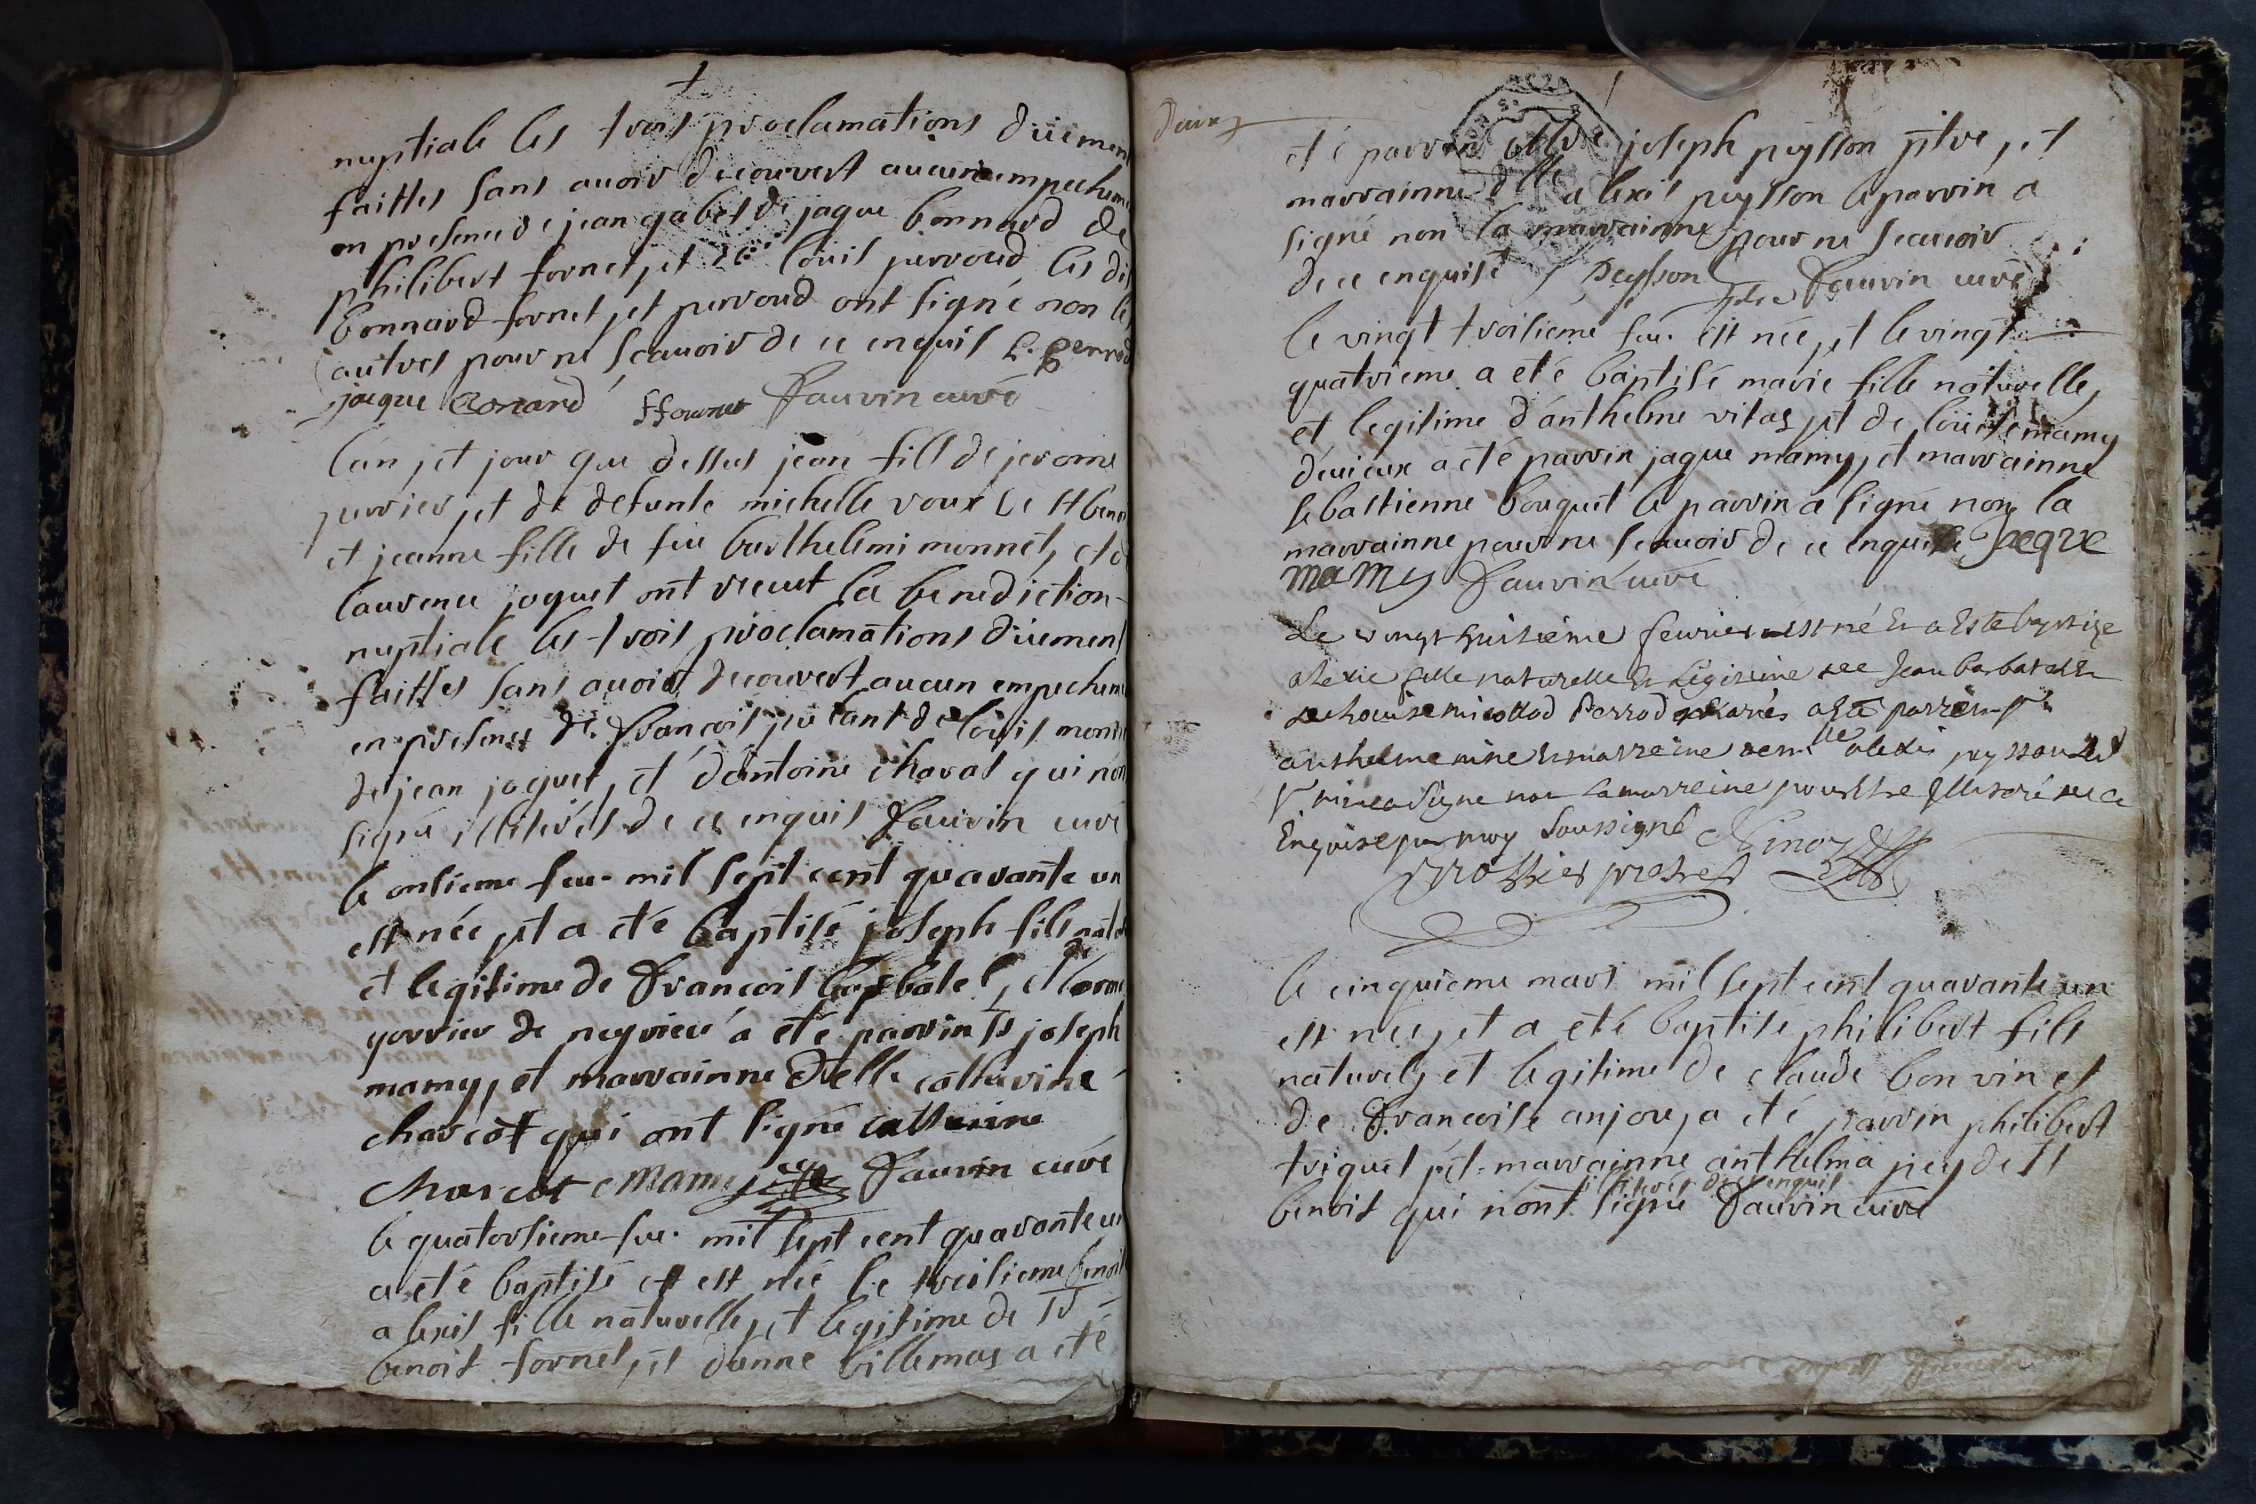 nuptiale les trois proclamations düement
faittes sans auoir decouvert aucun empechem
en presence de jean gabet de jaque bonnard de
philibert fornet, et de louis perroud les dis
bonnard fornet, et perroud ont signé non les
autres pour ne scauoir de ce enquis L. perrod
jacque Bonard ffournet fauvin curé
l'an, et jour que dessus jean fils de jerome
perrier, et de defunte michelle roux de st benoi
et jeanne fille de feu barthelemi monnet, et de
laurence joquet ont recut la benediction
nuptiale les trois proclamations düement
faittes sans avoir decouvert aucun empechem
en presence de francois de louis
de jean joquet, et d'antoine charat qui non
signé illiterés de ce enquis fauvin curé
le onsieme feu. mil sept cent quarante un
est née, et a eté baptisé joseph fils nat
et legitime de francois barbatel, et de
perrier de neyrieu a eté parrin sr joseph
mamy, et marrainne Delle catherine
charcot qui ont signé catherine
charcot mamy fauvin curé
le quatorsieme feu. mil sept cent quarante un
a eté baptisé et est née le treisieme benoit
alexis fille naturelle, et legitime de sr
benoit fornet, et d'anne billemas a eté
deux
eté parrin joseph peysson ptre, et
marrainne dlle alexis peysson le parrin a
signé non la marrainne pour ne scauoir
de ce enquise Peysson ptre fauvin curé
le vingt troisieme feu. est née, et le vingt
quatrieme a eté baptisé marie fille naturelle,
et legitime d'anthelme vitas, et de louise mamy
d'euieux a eté parrin jaque mamy, et marrainne
sebastienne bouquet le parrin a signé non la
marrainne pour ne scauoir de ce enquise Jacque
mamy fauvin curé
Le vingt huitieme feurier est né Et a Esté baptize
alexie fille naturelle Et Legitime de Jean barbatel Et
de Louise nicollod Perrod a Eté parrein sr
anthelme mine Et marreine demlle alexis peysson Led
sr mine a signe non La marreine pour Etre Illiteré de ce
Enquise par moy Soussigné
prestre
le cinquieme mars mil sept cent quarante un
est née, et a eté baptisé philibert fils
naturel, et legitime de claude bonvin et
de francoise anjou, a eté parrin philibert
triquet, et marrainne anthelma pey de st
benoit qui n'ont signé illiterés de ce enquis fauvin curé